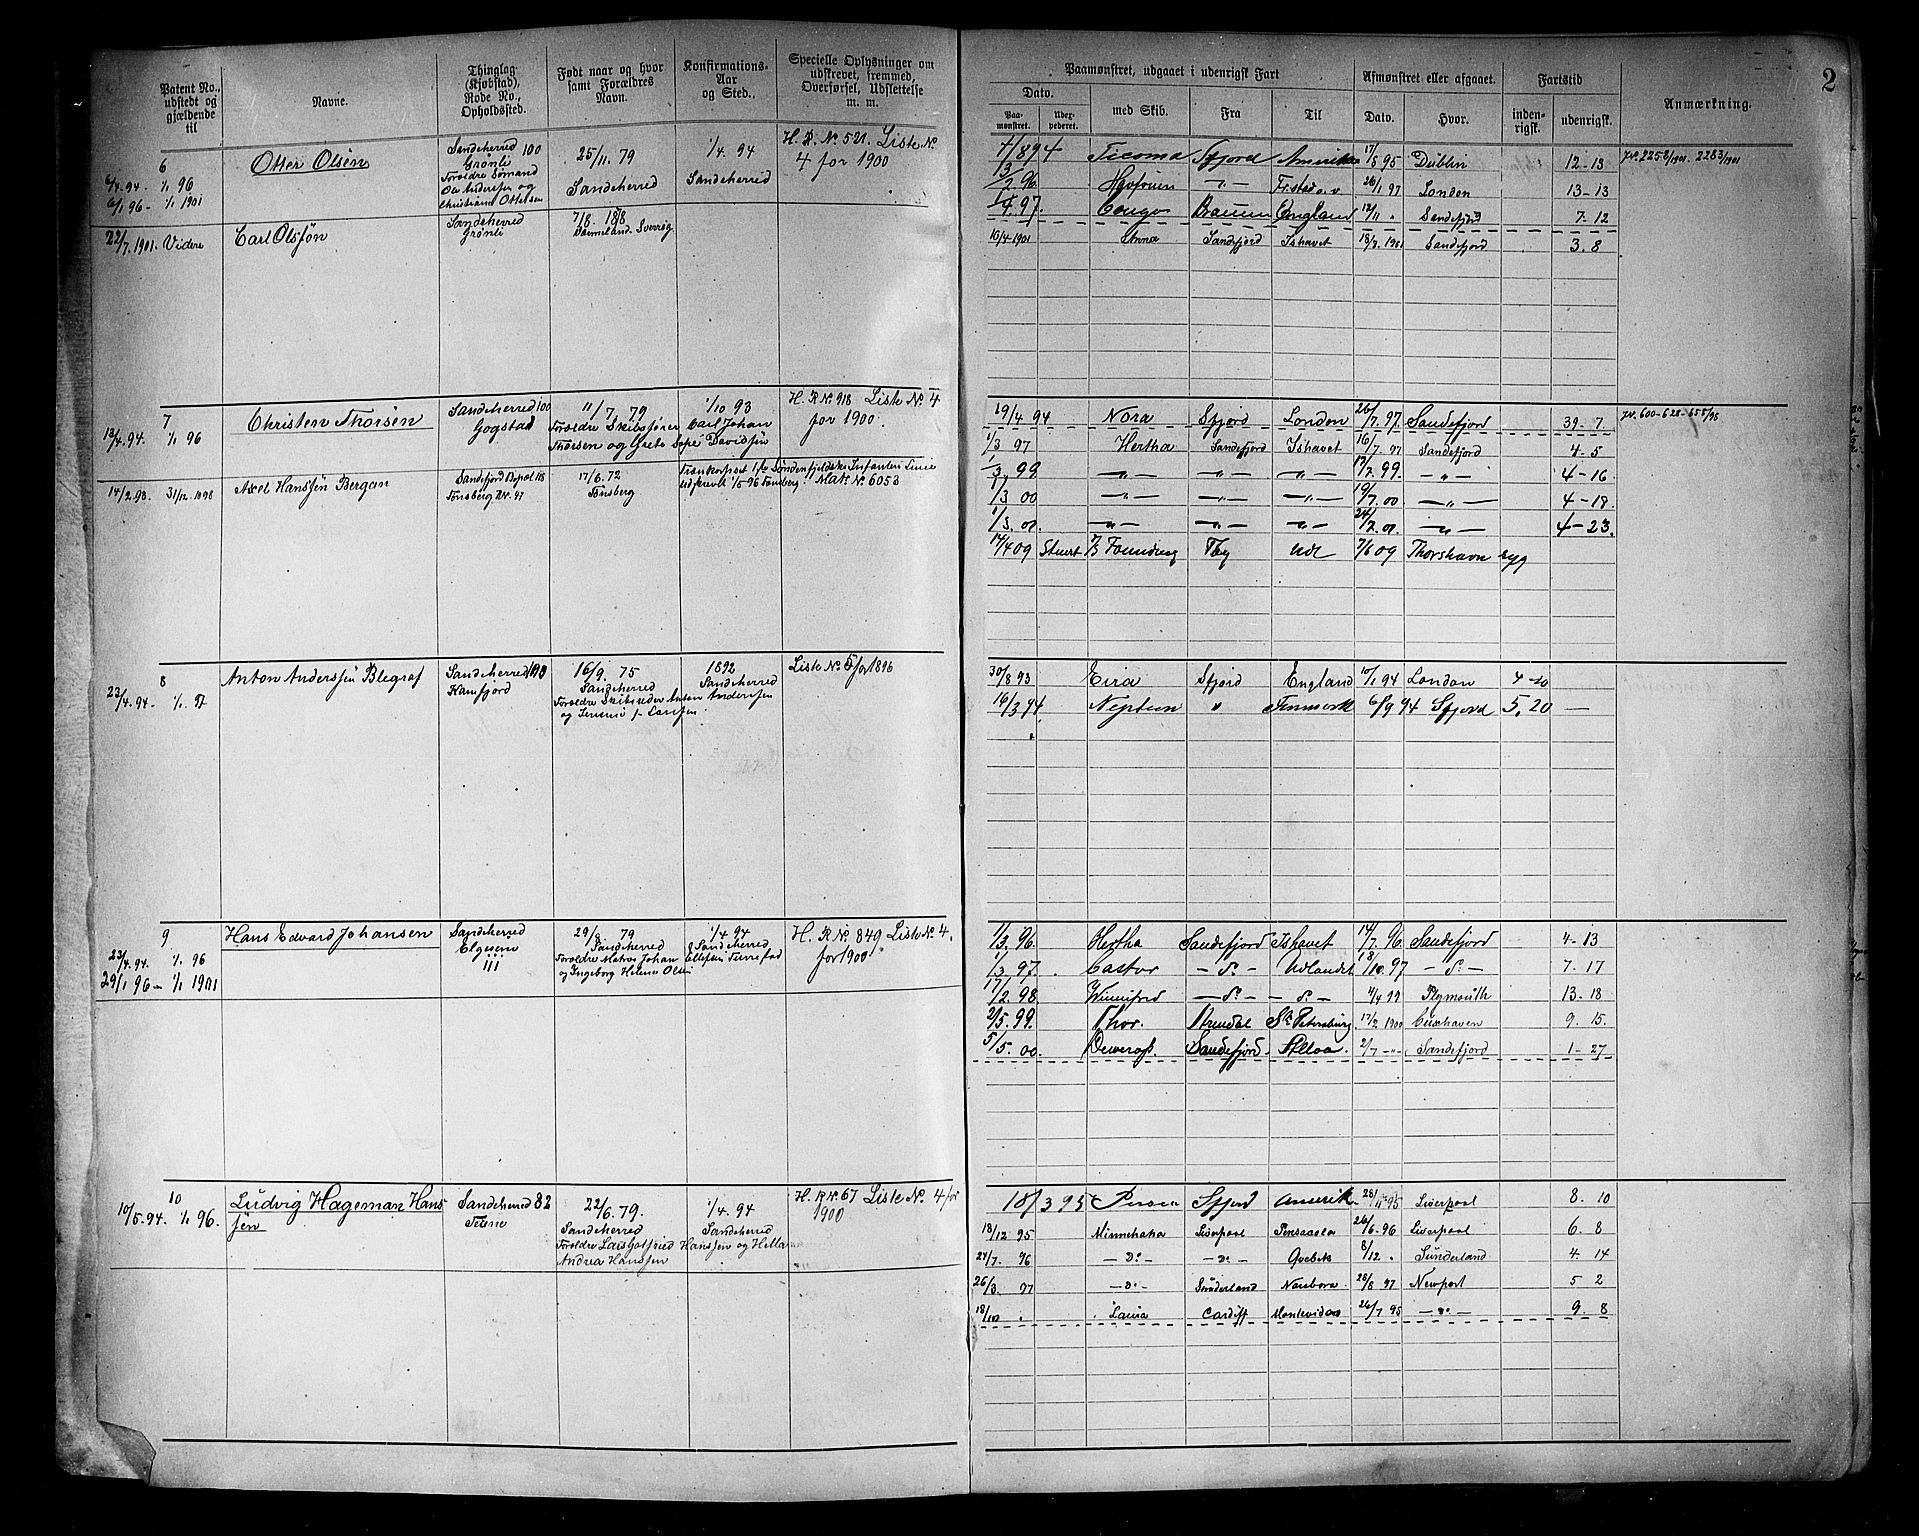 2
Patent No., udstedt og gjældende til
Navne.
Thinglag (Kjøbstad), Rode No., Opholdssted.
Født naar og hvor samt Forældres Navn.
Konfirmations-Aar og Sted.
Specielle Oplysninger om udskrevet, fremmed, Overførsel, Udslettelse m. m.
Paamønstret, udgaaet i udenrigsk Fart
Afmønstret eller afgaaet.
Fartstid
Anmærkning.
Dato.
Paa-mønstret.
med Skib.
Fra
Til
Dato.
Hvor.
inden-rigsk.
udenrigsk.
6
6/4 94. 1/1 96
6/1 96 - 1/1 1901
Otter Olsen
Sandeherred 100
Grønli
Forældre Sømand
Ole Andersen og
Christiane Ottersen
25/11. 79
Sandeherred
1/4. 94
Sandeherred
H. R. No. 521. Liste No.
4 for 1900
Ticoma Sfjord Amerika 17/5 95 Dublin 12-13
1/2 96 London 13-13
1/4 97. Congo England 12/11 " Sandefjord 7. 12
22/7. 1901. Videre
Carl Olssøn
Sandeherred
Grønli
10/4-1901 Anna Sandefjord Ishavet 18/7. 1901 Sandefjord 3. 8
7
13/4. 94. 1/1 96
Christen Thorsen
Sandeherred 100
Gogstad
11/7. 79
Forældre Skibsfører Carl Johan
Thorsen og Grete Davidsen
1/10 93
H. R No. 918 Liste No. 4
for 1900.
19/4 94 Nora Sfjord London 26/7. 97. Sandefjord 39. 7.
No. 600-628-658/95
1/3 97 Hertha Sandefjord Ishavet 16/7. 97 Sandefjord 4-5
1/3. 99 — " — — " — — " — 17/7. 99. — " — 4-16.
1/3 00 — " — — " — — " — 19/7. 00. — " — 4-18.
4-23.
17/4 09 Ude 7/6 09 Thorshavn syg
14/2. 98. 31/12. 1898
Axel Hanssen Bergan
Tønsberg Nr. 97
17/6. 72
Tønsberg
8
23/4. 94.
Anton Anderssen Blegraf
Sandeherred
16/9. 75
Sandeherred
Forældre
1892
Sandeherred
Anderssen
Liste No. 5 for 1896
30/8 93 Eira Sfjord England 10/1 94 London 4-20 —
16/3 94 Neptun " Finmark 6/9 94 Sfjord 5. 20 —
9
23/4. 94. 1/1. 96
29/1 96 - 1/1 1901
Hans Edvard Johansen
Sandeherred
Elgesem
111
79
Sandeherred
Forældre Matros Johan Ellefsen
og Ingeborg Helene
1/4. 94
Sandeherred
H. R No. 849. Liste No. 4.
for 1900.
1/3. 96. Hertha Sandefjord Ishavet 14/7. 96. Sandefjord 4-13
1/3 97. Castor — do — Udlandet 18/10. 97 — do — 7. 17
17/2. 98 Winnifred — do — — do — Plymouth 13. 18
2/5. 99. Thor. Arendal St. Petersburg 17/2 1900 Cuxhaven 9. 15.
5/5. 00. Sandefjord Alloa. 2/7 -"- Sandefjord 1-27
10
10/5. 94. 1/1 96.
Ludvig Hageman Hans
sen
Sandeherred 82
22/6. 79.
Sandeherred
Forældre Lars Gotfried Hanssen og
Andrea Hanssen
1/4. 94
Sandeherred
H. R No. 67 Liste No. 4 for
1900
18/3 95 Sfjord Liverpool 8. 10
18/12 95 Minnehaha Liverpool Pensacola 26/6. 96 Liverpool 6. 8
24/7. 96 — do — — do — Qvebek 8/12 . Sunderland 4. 14
26/3. 97 — do — Sunderland 28/8 97 Newport 5 2
18/10 . Laura Cardiff Montevideo — do — 9. 8